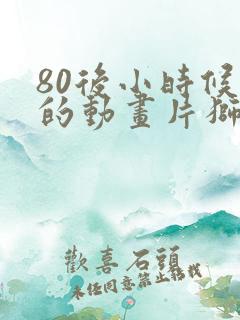 80後小時候
的動畫片獅
歡喜石頭
未經同意禁止轉載